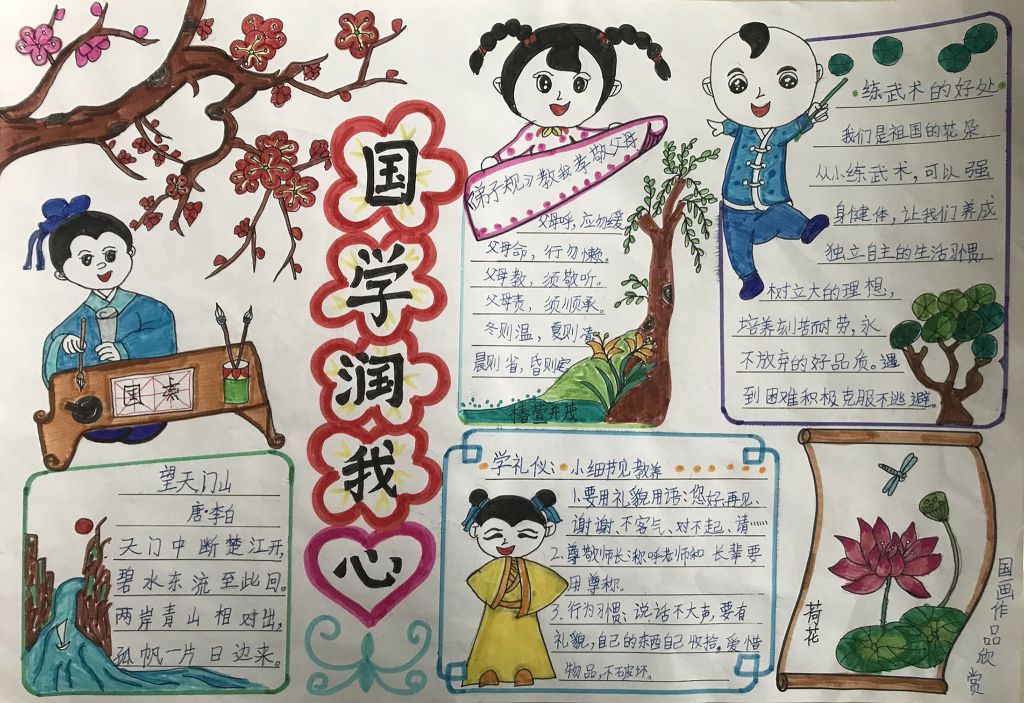 国学润我心
国
望天门山
唐·李白
天门中断楚江开,
碧水东流至此回。
两岸青山相对出,
孤帆一片日边来。
《弟子规》教我孝敬父母
父母呼,应勿缓
父母命,行勿懒。
父母教,须敬听。
父母责,须顺承。
冬则温,夏则凊
晨则省,昏则定
练武术的好处
我们是祖国的花朵
从小练武术,可以强
身健体,让我们养成
独立自主的生活习惯,
树立大的理想,
培养刻苦耐劳,永
不放弃的好品质。遇
到困难积极克服不逃避。
学礼仪:小细节见教养
1.要用礼貌用语:您好,再见、
谢谢、不客气、对不起、请……
2.尊敬师长:称呼老师和长辈要
用尊称。
3.行为习惯:说话不大声,要有
礼貌,自己的东西自己收拾,爱惜
物品,不破坏。
荷花
国画作品欣赏